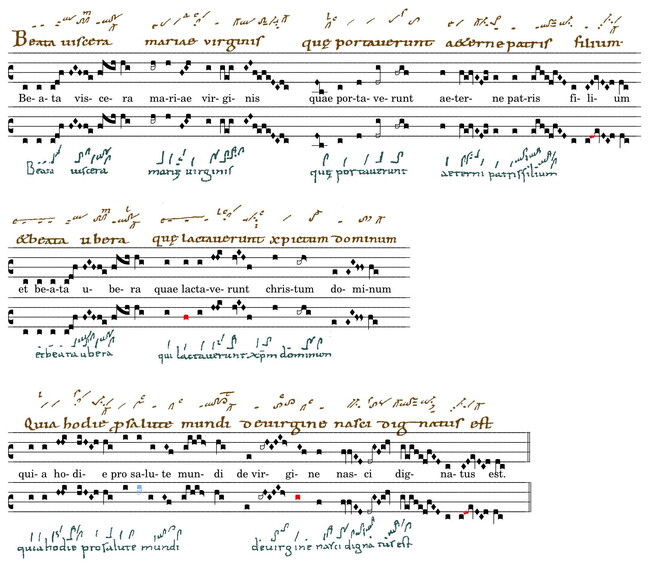 Beata uiscera mariae virginis quę portauerunt aeterne patris filium·
Be- a- ta vis- ce- ra ma-ri-ae vir- gi- nis quae por-ta- ve- runt ae-ter- ne pat-ris fi- li- um
Beata uiscera marię uirginis quę portauerunt aeterni patris filium
&beata ubera quę lactauerunt xpictum dominum
et be-a-ta u- be- ra quae lacta-ve- runt chris-tum do- mi-num
et beata ubera qui lactauerunt xp̄m dominum
Quia hodie psalute mundi deuirgine nasci dignatus est
qui- a ho- di- e pro sa-lu- te mun- di de vir- gi- ne nas- ci dig- na- tus est.
quia hodie pro salute mundi deuirgine nasci digna tus est